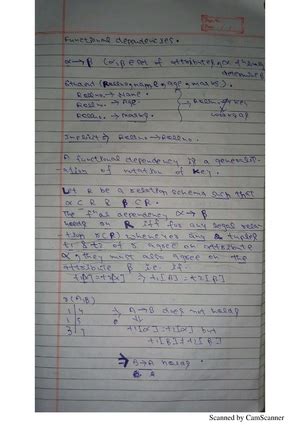 Functional dependencies.
α→β (α, β ⊆ set of attributes,
determine
Student (Rollno, name, age, marks).
Rollno → Name
Rollno. → Age
Rollno. → marks
Rollno → Rollno.
A functional dependency is a generaliz-
-ation of notation of key.
Let R be a relation schema such that
α ⊂ R & β ⊂ R.
The dependency α→β
holds on R iff for any legal rela-
-tion r(R) whenever any two tuples
t1 & t2 of r agree on attribute
α, they must also agree on the
attribute β i.e. if
t1[α] = t2[α] ⇒ t1[β] = t2[β]
r(A,B)
1 | 4 A→B does not hold
1 | 5 t1[α] = t2[α] but
3 | 7 t1[β] ≠ t2[β]
⇒ B→A holds
Scanned by CamScanner